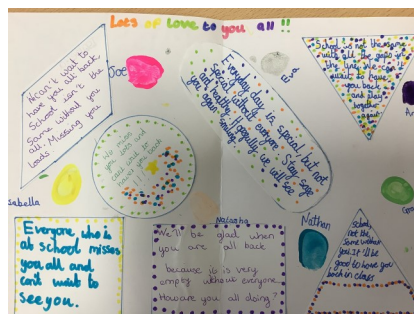 Lots of love to you all!!
N:Can't wait to
have you all back!
School isn't the
Same without you
all. Missing you
loads.
Joe
Everyday day is special but not
special without everyone. Stay safe
and healthy. Hopefully we will see
you again
School is not the same
with all the gaps in
the line. We can't
wait to have
you back
and play
together
again
We miss
you lots and
cant wait to
have you back
Isabella
Everyone who is
at school misses
you all and
can't wait to
see you.
Natasha
We'll be glad when
you are all back
because i6 is very
empty without everyone.
How are you all doing?
Nathan
School
not the
Same without
you. It'll be
good to have you
back in class